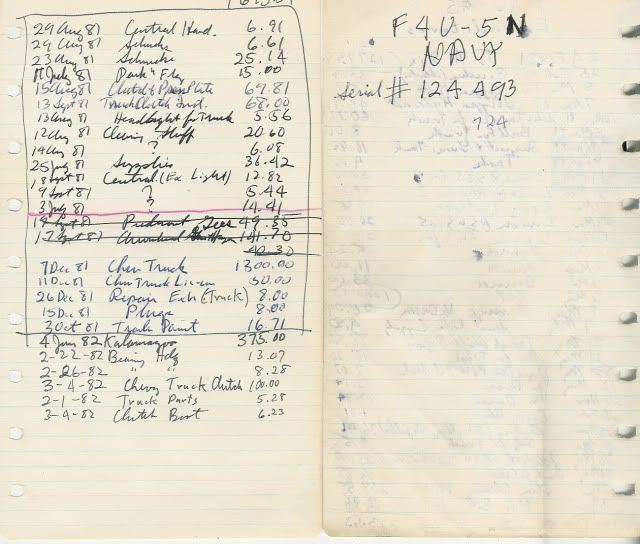 29 Aug 81 Central Hard. 6.91
29 Aug 81 Schucks 6.61
23 Aug 81 Schucks 25.14
11 July 81 Park n Fly 15.00
15 Aug 81 Clutch & Press Plate 69.81
13 Sept 81 Truck Clutch Inst. 68.00
13 Aug 81 Headlight for Truck 5.56
12 Aug 81 Cleaning Stuff 20.60
14 Aug 81 ? 6.08
25 July 81 Supplies 36.42
8 Sept 81 Central (Ex Light) 12.82
9 Sept 81 ? 5.44
3 July 81 ? 14.41
19 Sept 81 Piedmont 49.35
17 Sept 81 141.70
40.30
7 Dec 81 Chev Truck 1300.00
11 Dec 81 Chev Truck Licen 50.00
26 Dec 81 Repair Exh (Truck) 8.00
15 Dec 81 Plugs 8.00
30 Oct 81 Truck Paint 16.71
4 Jan 82 Kalamazoo 375.00
2-22-82 Bearing Hdg 13.07
2-26-82 " " 8.28
3-4-82 Chevy Truck Clutch 100.00
2-1-82 Truck Parts 5.28
3-9-82 Clutch Boot 6.23
F4U-5N
NAVY
Serial # 124493
724